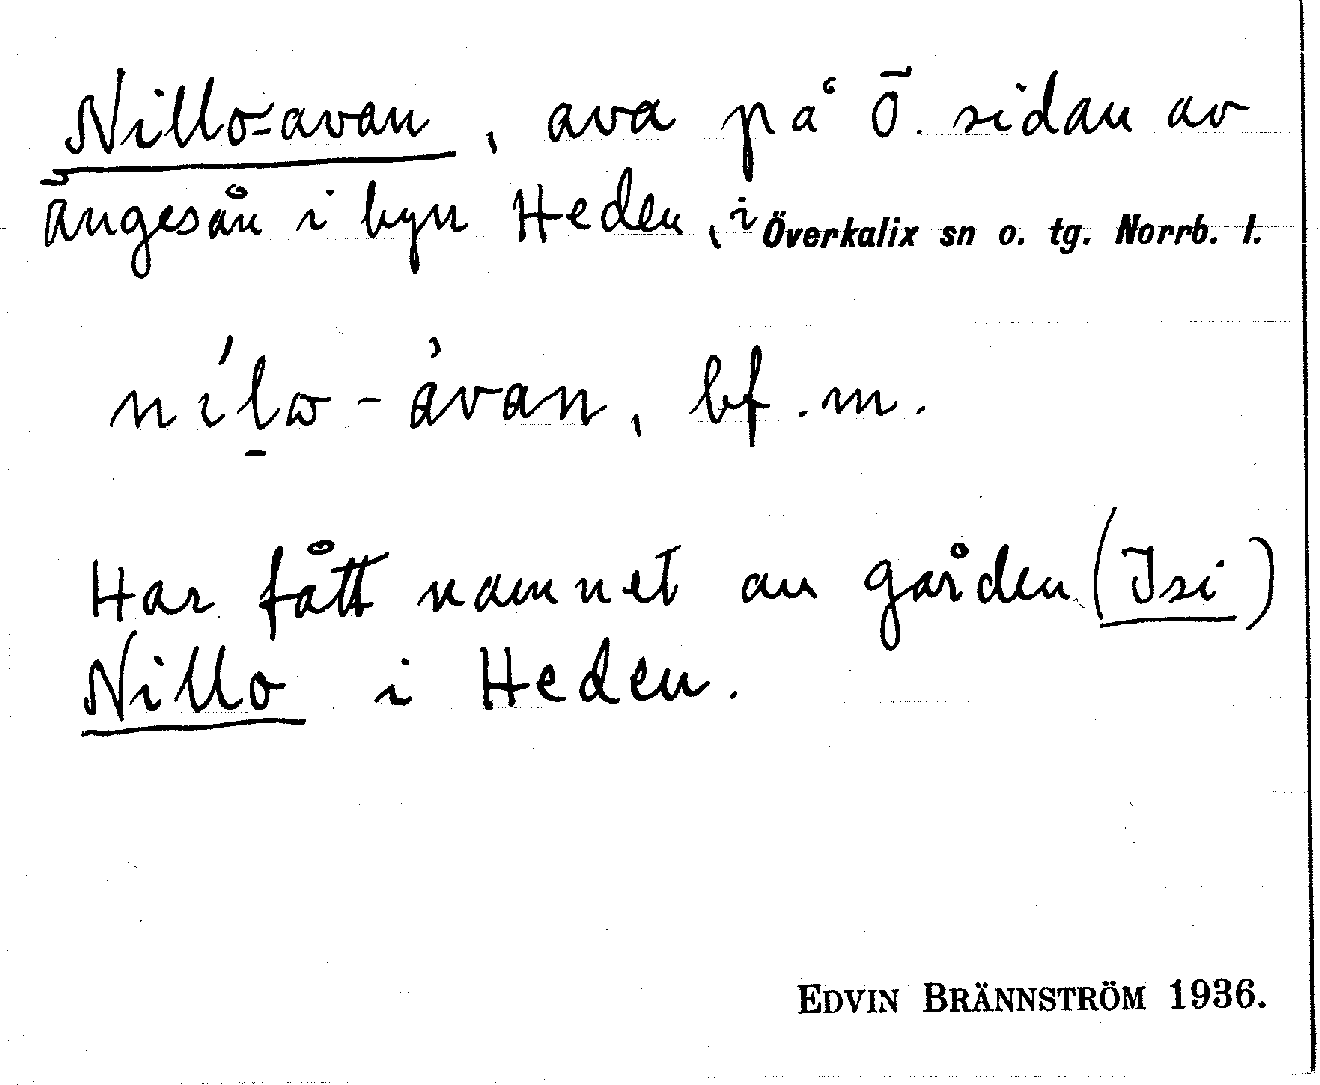 Nillo-avan, ava på Ö. sidan av
Ängesån i byn Heden, i Överkalix sn o. tg. Norrb. l.
nílω-àvan, bf. m.
Har fått namnet av gården (Isi)
Nillo i Heden.
EDVIN BRÄNNSTRÖM 1936.